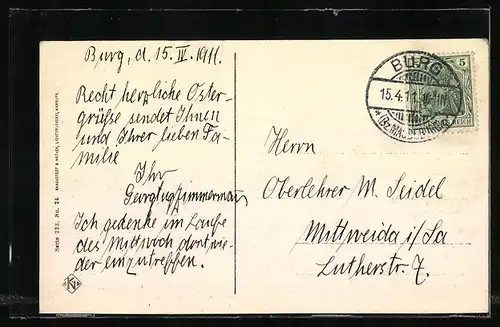 Burg, d. 15. IV. 1911.
Recht herzliche Oster-
grüße sendet Ihnen
und Ihrer lieben Fa-
milie
Ihr
Georg Zimmermann
Ich gedenke im Laufe
des Mittwoch dort wie-
der einzutreffen.
Serie 233, No. 24
BURG
15.4.11.
5
REICH
Herrn
Oberlehrer M. Seidel
Mittweida i/Sa
Lutherstr. 7.